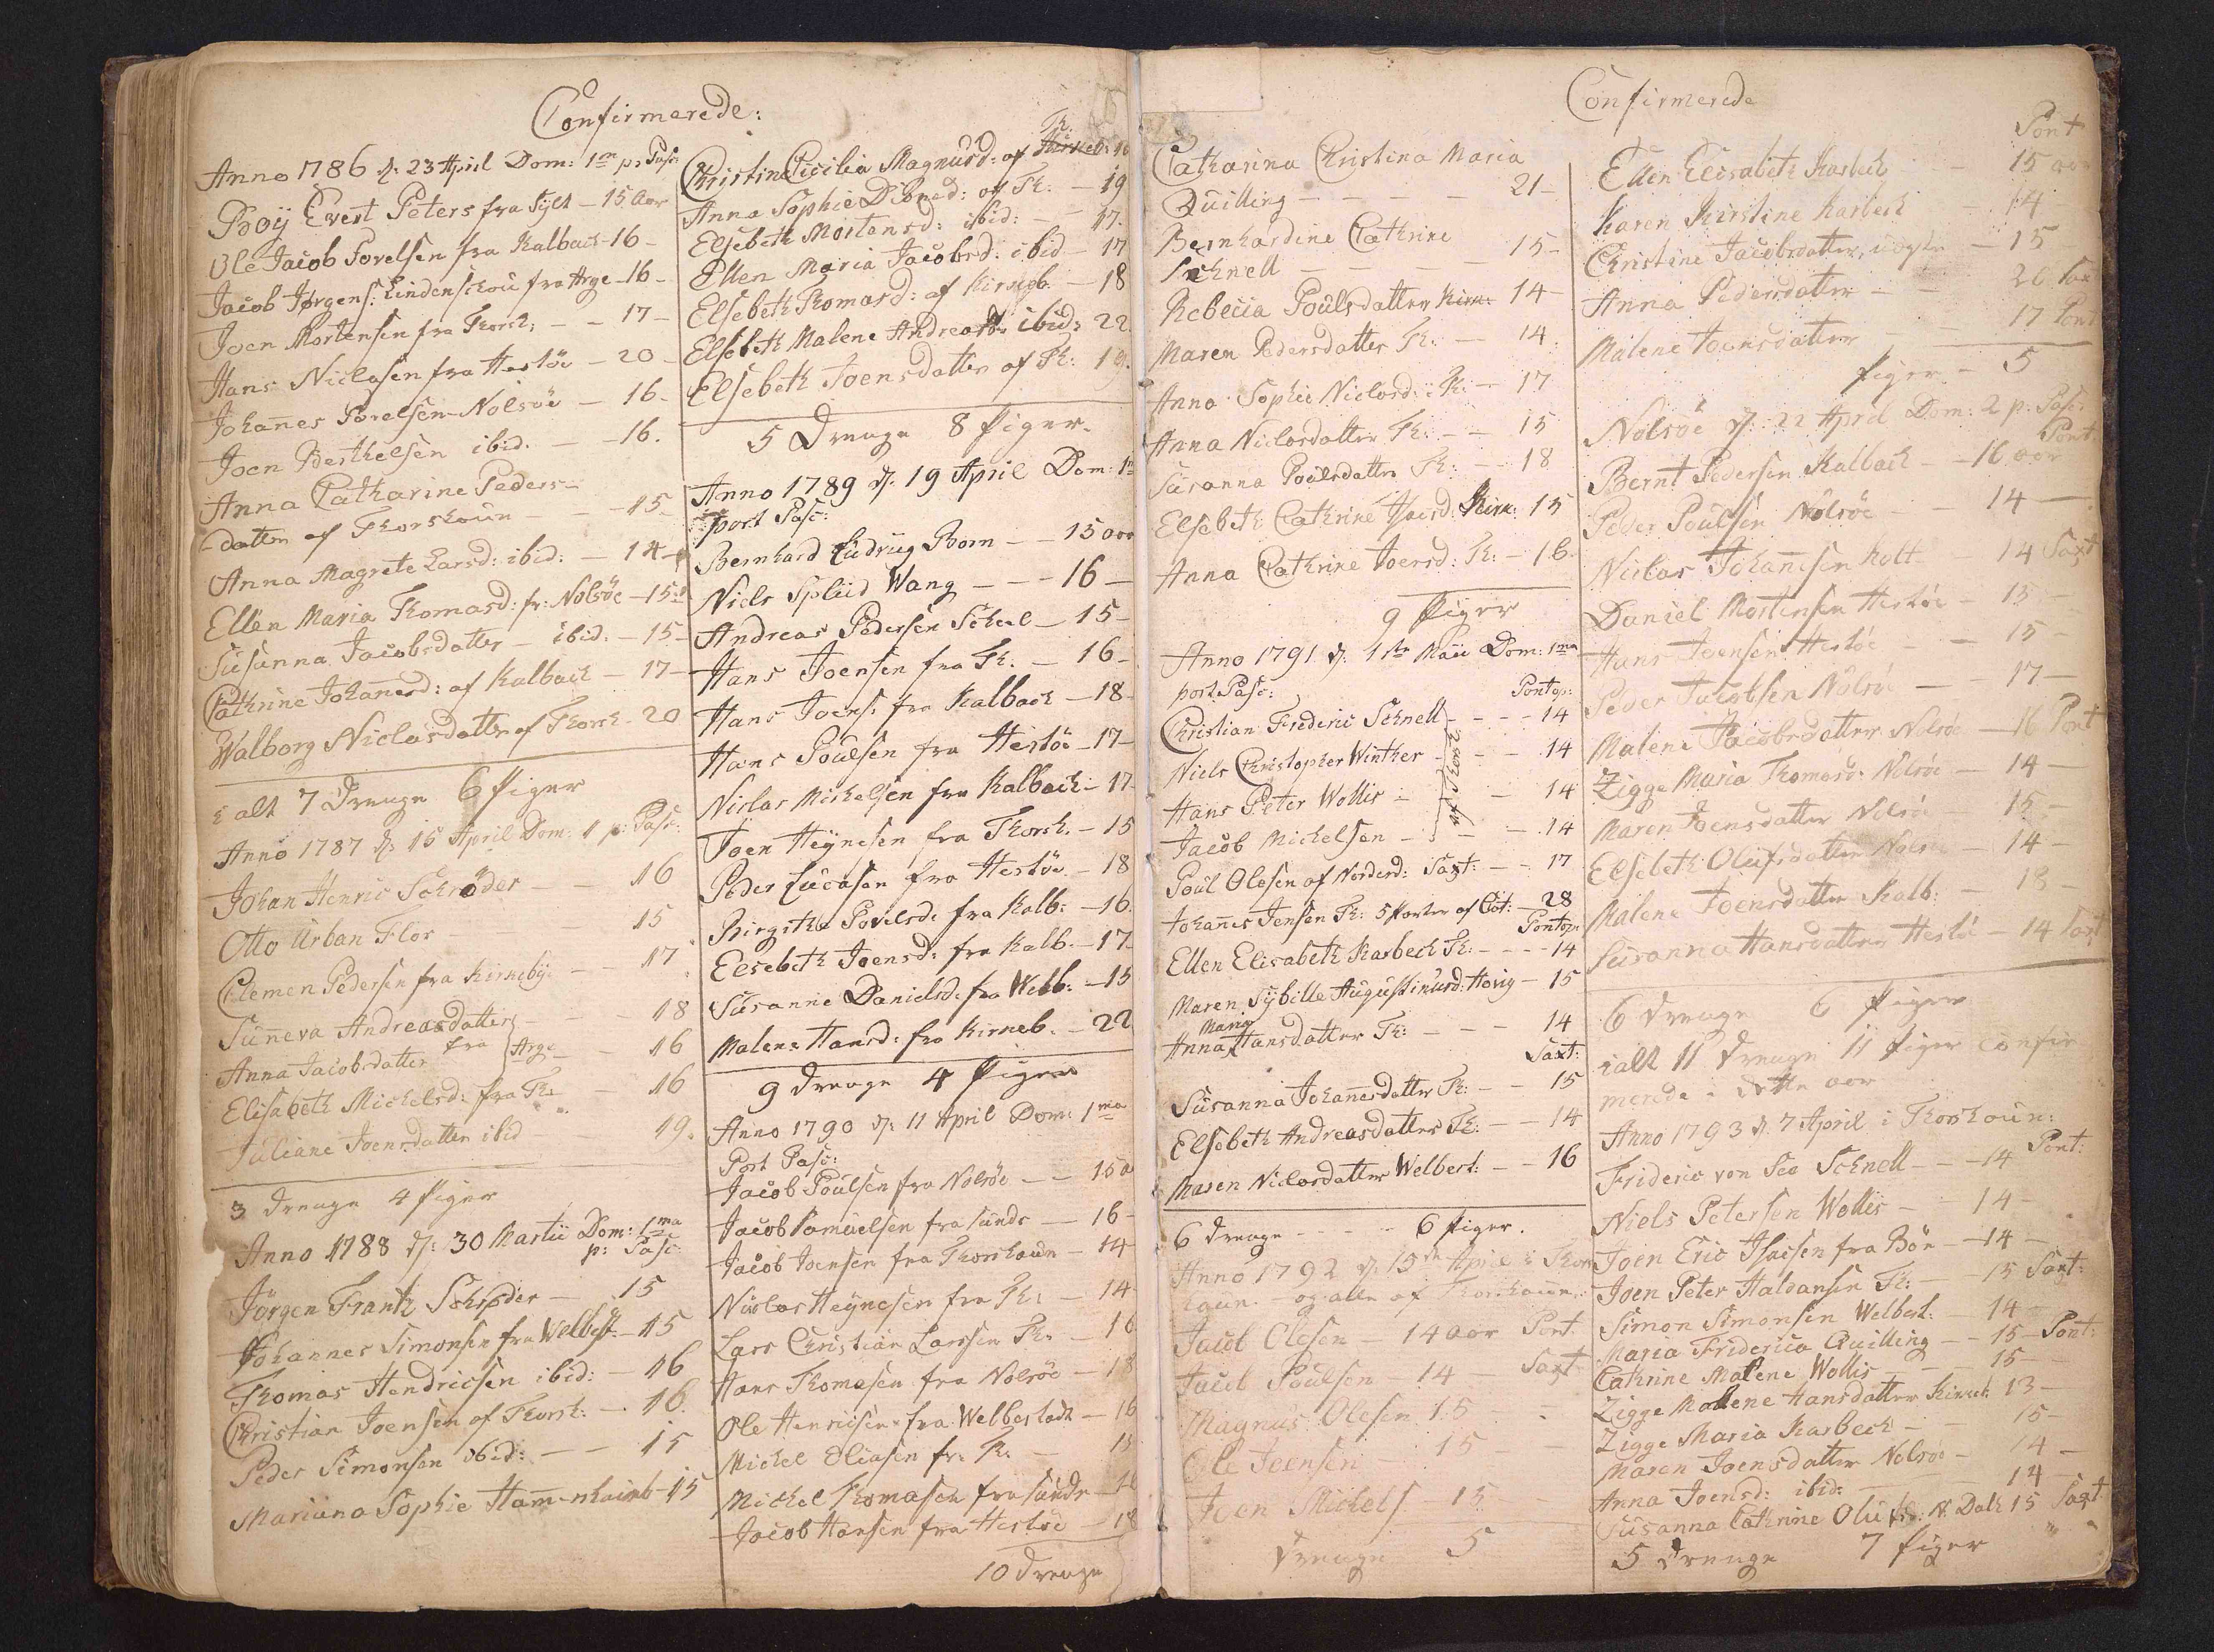 Confirmerede:
Anno 1786 d: 23 April Dom: 1m p: Pasc:
Boÿ Evert Peters fra Sylt - 15 Aar
Ole Jacob Povelsen fra Kalbach - 16 -
Jacob Jørgens: Lindenskou fra Arge - 16 -
Joen Mortensen fra Thorsh: - - 17 -
Hans Niclasen fra Hestöe - 20 -
Johanes Povelsen Nolsöe - 16 -
Joen Berthelsen ibid. - - 16.
Anna Catharine Peders-
-datter af Thorshoun - - 15 -
Anna Magrete Larsd: ibid: - 14 -
Ellen Maria Thomasd: fr: Nolsöe - 15 -
Susanna Jacobsdatter - ibid. - 15 -
Cathrine Johanesd: af Kalbach - 17 -
Walborg Niclasdatter af Thorsh - 20
i alt 7 Drenge 6 Piger
Anno 1787 d: 15 April Dom: 1 p: Pasc:
Johan Henric Schröder - - 16
Otto Urban Flor - - 15
Clemen Pedersen fra Kirkebÿe - - 17
Suneva Andreasdatter - - 18
Anna Jacobsdatter fra Arge - - 16
Elisabeth Michelsd: fra Th: - 16
Juliane Joensdatter ibid - - 19.
3 Drenge 4 Piger
Anno 1788 d: 30 Martii Dom: 1ma
p: Pasc:
Jörgen Frantz Schröder - 15
Johannes Simonsen fra Welbest: - 15
Thomas Hendricsen ibid: - 16
Christian Joensen af Thorsh: - 16.
Peder Simonsen ibid: - - 15
Mariana Sophie Hammershaimb - 15
Th.
Christine Cicilia Magnusd: af
Anna Sophie Dibned: af Th: - 19
Elsebeth Mortensd: ibid: - - 17.
Ellen Maria Jacobsd: ibid - 17
Elsebeth Thomasd: af Kirkeb. - 18
Elsebeth Malene Andreasd: ibid: 22.
Elsebeth Joensdatter af Th: 19.
5 Drenge 8 Piger.
Anno 1789 d: 19 April Dom: 1m
post Pasc:
Bernhard Ludvig Born - - 15 aar
Niels Splid Wang - - - 16 -
Andreas Pedersen Scheel - 15 -
Hans Joensen fra Th. - 16 -
Hans Joens: fra Kalbach - 18 -
Hans Poulsen fra Hestöe - 17 -
Niclas Michelsen fra Kalbach - 17 -
Joen Heÿnesen fra Thorsh. - 15
Peder Lucasen fra Hestöe - 18
Birgithe Povelsd: fra Kalb: - 16.
Elsebeth Joensd: fra Kalb. - 17 -
Susanne Danielsd: fra Welb: - 15
Malene Hansd: fra Kirkeb. - 22
9 Drenge 4 Piger
Anno 1790 d: 11 April Dom: 1ma
Post Pasc:
Jacob Poulsen fra Nolsöe - - 15 a
Jacob Samuelsen fra Sunde - 16 -
Jacob Joensen fra Thorshoun - 14 -
Niclas Heÿnesen fra Th: - 14 -
Lars Christian Larsen Th. - 16
Hans Thomasen fra Nolsöe - 18
Ole Henricsen fra Welbestadt - 16
Michel Eliasen fr: Th. - 15
Michel Thomasen fra Sunde - 16
Jacob Hansen fra Hestöe - 18
10 Drenge
Confirmerede
Catharina Christina Maria
Quilling - - - - 21 -
Bernhardine Cathrine
Schnell - - - - 15 -
Rebecca Poulsdatter Kirk: 14 -
Maren Pedersdatter Th: - 14.
Anna Sophie Niclasd: Th: - 17
Anna Niclasdatter Th: - - 15
Susanna Poulsdatter Th: - 18
Elsebeth Cathrine Isacsd: Kirk: 15
Anna Cathrine Joensd: Th: - 16.
9 Piger
Anno 1791 d: 1ste Maii Dom: 1ma
post Pasc:
Pontop:
Christian Frederic Schnell - - - 14
Niels Christopher Winther - - - 14
Hans Peter Wollis - - 14
Jacob Michelsen - - - 14
af Thorsh
Poul Olesen af Norderd: Saxt: - - 17
Johanes Jensen Th: 5 Parter af Cat: - 28
Pontop:
Ellen Elisabeth Karbech Th: - - - 14
Maren Sÿbille Augustinusd: Høvig - 15
Maria
Anna Hansdatter Th: - - - 14
Saxt:
Susanna Johannesdatter Th: - - 15
Elsebeth Andreasdatter Th: - - 14
Maren Niclasdatter Welbest: - - 16
6 Drenge - - - 6 Piger.
Anno 1792 d: 15de April i Thors
haun - og alle af Thorshaun:
Jacob Olesen - 14 aar Pont:
Jacob Poulsen - 14 - Saxt
Magnus Olesen 15 -
Ole Joensen 15 -
Joen Michels 15 -
Drenge 5
Pont
Ellen Elisabeth Karbech - 15 aar
Karen Kirstine Karbech - 14 -
Christine Jacobsdatter, uægte - 15
Anna Pedersdatter - - 26 Sax
Malene Joensdatter - - 17 Pont
Piger - 5
Nolsöe d: 22 April Dom: 2 p: Pasc:
Pont:
Bernt Pedersen Kalbach - - 16 aar
Peder Poulsen Nolsöe - - 14 -
Niclas Johannesen Kolt - 14 Saxt
Daniel Mortensen Hestöe - 15 -
Hans Joensen Hestöe - 15 -
Peder Jacobsen Nolsöe - 17 -
Malene Jacobsdatter Nolsöe - 16 Pont
Zigge Maria Thomasd: Nolsöe - 14 -
Maren Joensdatter Nolsöe - 15 -
Elsebeth Olufsdatter Nolsöe - 14 -
Malene Joensdatter Kalb: - 18 -
Susanna Hansdatter Hestöe - 14 Saxt
6 Drenge 6 Piger
ialt 11 Drenge 11 Piger Confir
merede i dette aar
Anno 1793 d 7 April i Thorshoun:
Pont:
Frideric von Sea Schnell - - - 14
Niels Petersen Wollis - 14 -
Joen Eric Isacsen fra Bön - 14 -
Joen Peter Haldansen Th: - 15 Saxt:
Simon Simonsen Welbest: - 14 -
Maria Fridericа Quilling - - 15 - Pont:
Cathrine Malene Wollis - - 15 -
Zigge Malene Hansdatter Kirkeb: 13 -
Zigge Maria Karbech - - 15 -
Maren Joensdatter Nolsöe - 14 -
Anna Joensd: ibid: - 14 -
Susanna Cathrine Olufsd: N: Dalh 15 Saxt
5 Drenge 7 Piger